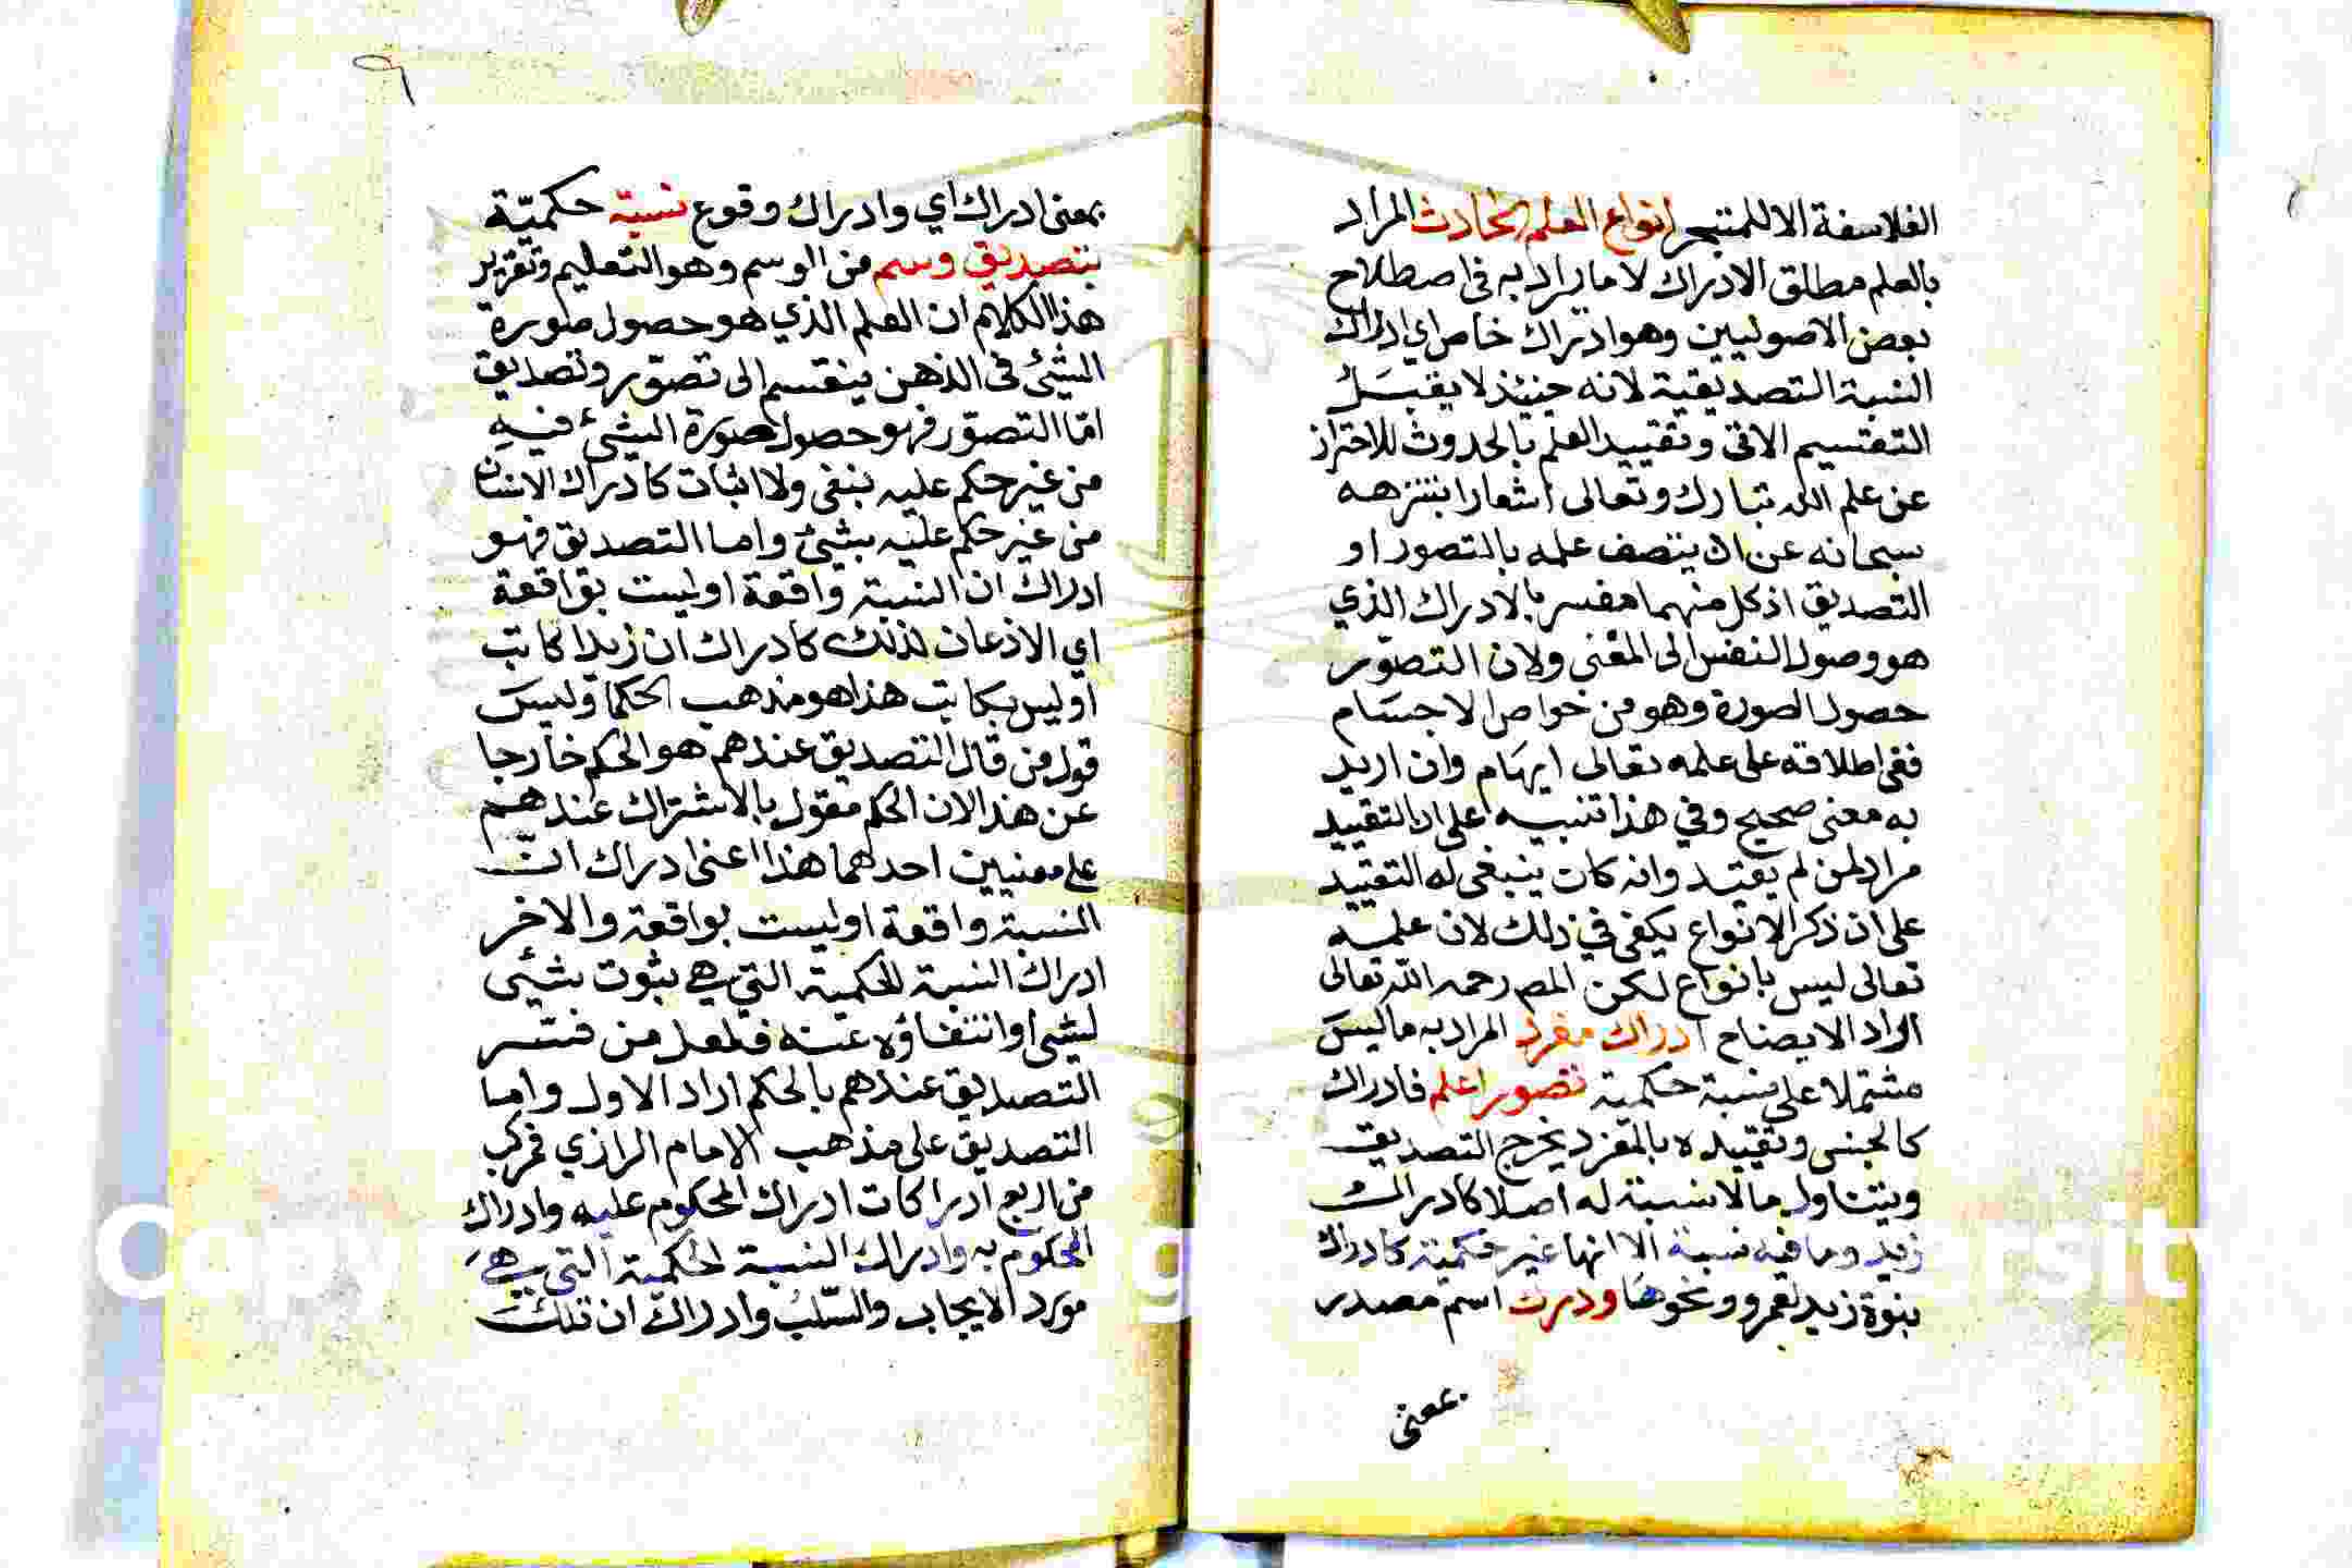 الفلاسفة الا للمتبحر انواع العلم الحادث المراد
بالعلم مطلق الادراك لا ما يراد به في اصطلاح
بعض الاصوليين وهو ادراك خاص اي ادراك
النسبة التصديقية لانه حينئذ لا يقبل
التقسيم الاتي وتقييد العلم بالحدوث للاحتراز
عن علم الله تبارك وتعالى اشعارا بتنزهه
سبحانه عن ان يتصف علمه بالتصور او
التصديق اذ كل منهما مفسر بالادراك الذي
هو وصول النفس الى المعنى ولان التصوّر
حصول الصورة وهو من خواص الاجسام
ففي اطلاقه على علمه تعالى ايهام وان اريد
به معنى صحيح وفي هذا تنبيه على ان التقييد
مراد لمن لم يقيد وانه كان ينبغي له التقييد
على ان ذكر الانواع يكفي في ذلك لان علمه
تعالى ليس بانواع لكن المص رحمه الله تعالى
اراد الايضاح ادراك مفرد المراد به ما ليس
مشتملا على نسبة حكمية تصورا علم فادراك
كالجنس وتقييده بالمفرد يخرج التصديق
ويتناول ما لا نسبة له اصلا كادراك
زيد وما فيه نسبة الا انها غير حكمية كادراك
بنوة زيد لعمرو ونحوها ودرك اسم مصدر
بمعنى
٩
بمعنى ادراك اي وادراك وقوع نسبة حكميّة
بتصديق وسم من الوسم وهو التعليم وتقرير
هذا الكلام ان العلم الذي هو حصول صورة
الشئ في الذهن ينقسم الى تصوّر وتصديق
امّا التصوّر فهو حصول صورة الشئ فيه
من غير حكم عليه بنفي ولا اثبات كادراك الانسان
من غير حكم عليه بشئ واما التصديق فهو
ادراك ان النسبة واقعة او ليست بواقعة
اي الاذعان لذلك كادراك ان زيدا كاتب
او ليس بكاتب هذا هو مذهب الحكما وليس
قول من قال التصديق عندهم هو الحكم خارجا
عن هذا لان الحكم مقول بالاشتراك عندهم
على معنيين احدهما هذا اعنى ادراك انّ
النسبة واقعة او ليست بواقعة والاخر
ادراك النسبة الحكمية التي هي ثبوت شئى
لشئ او انتفاؤه عنه فلعل من فسّر
التصديق عندهم بالحكم اراد الاول واما
التصديق على مذهب الامام الرازي فمركب
من اربع ادراكات ادراك المحكوم عليه وادراك
المحكوم به وادراك النسبة الحكمية التي هي
مورد الايجاب والسّلب وادراك ان تلك